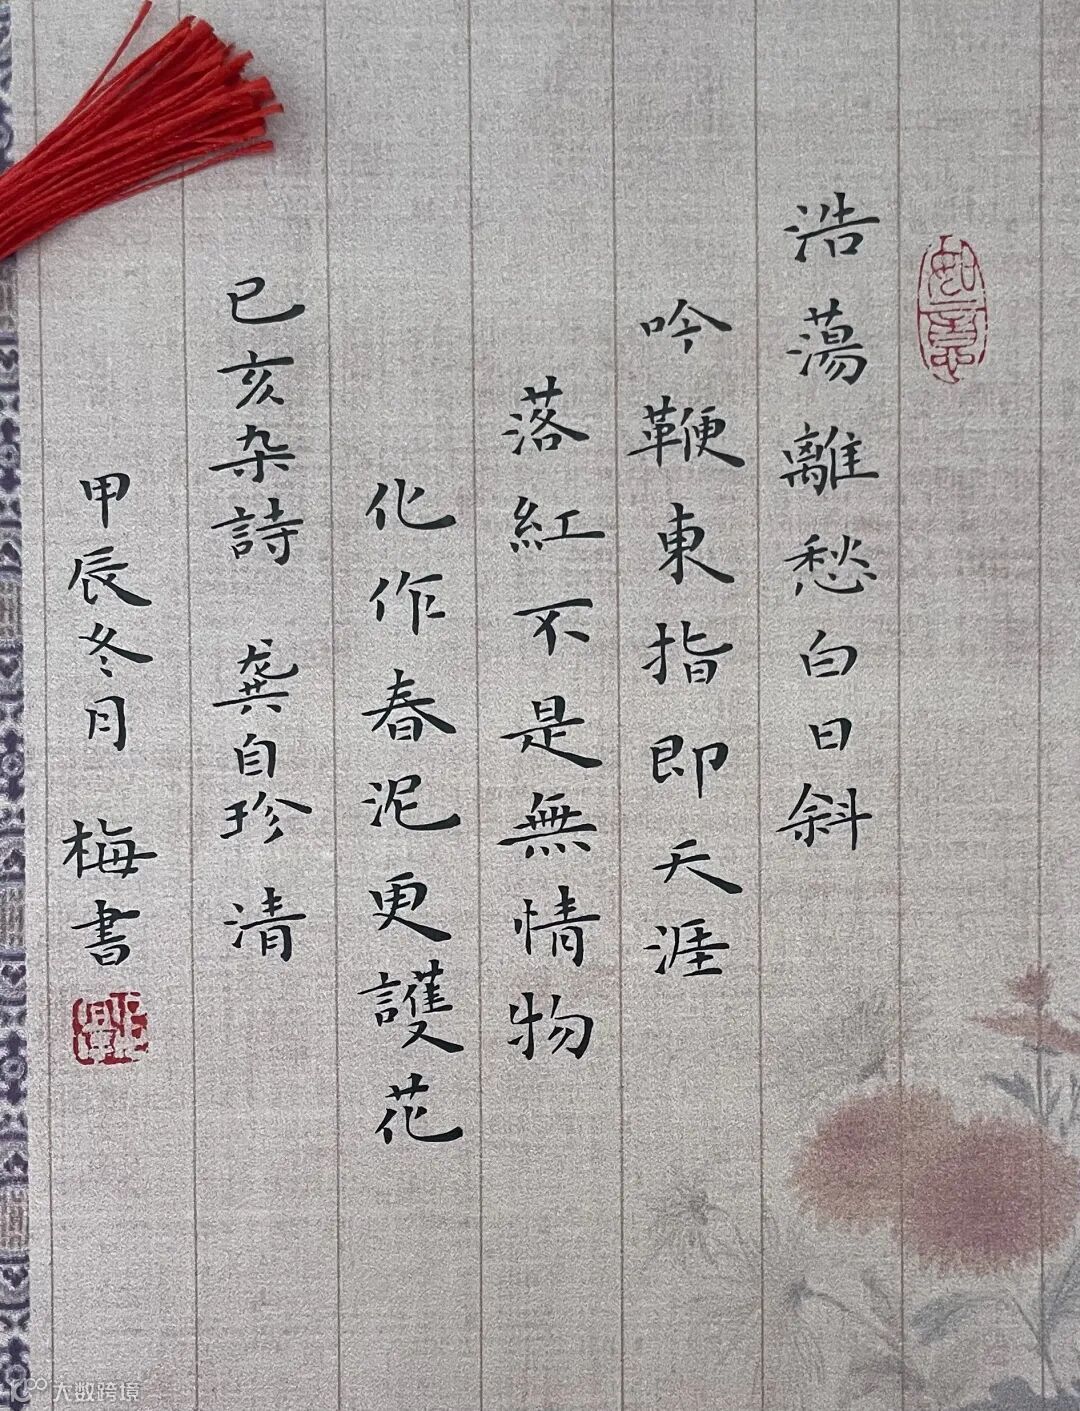 如意
浩蕩離愁白日斜
吟鞭東指即天涯
落紅不是無情物
化作春泥更護花
已亥杂詩 龚自珍 清
甲辰冬月 梅書
大数跨境